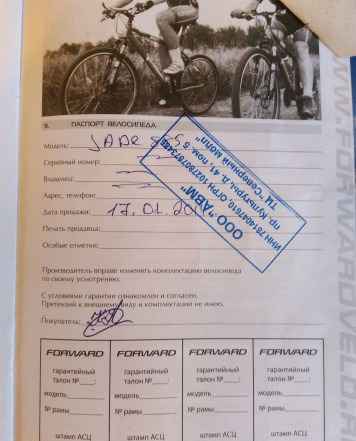 9. ПАСПОРТ ВЕЛОСИПЕДА
Модель: JADE
Серийный номер:
Владелец:
Адрес, телефон:
Дата продажи: 17.01.
Печать продавца:
Особые отметки:
ООО "АВМ"
пр. Культуры, д. 41, пом. 5
ТЦ "Северный молл"
Производитель вправе изменить комплектацию велосипеда
по своему усмотрению.
С условиями гарантии ознакомлен и согласен.
Претензий к внешнему виду и комплектации не имею.
Покупатель:
FORWARD FORWARD FORWARD FORWARD
гарантийный гарантийный гарантийный гарантийный
талон №____: талон №____: талон №____: талон №____:
модель модель модель модель
№ рамы № рамы № рамы № рамы
штамп АСЦ штамп АСЦ штамп АСЦ штамп АСЦ